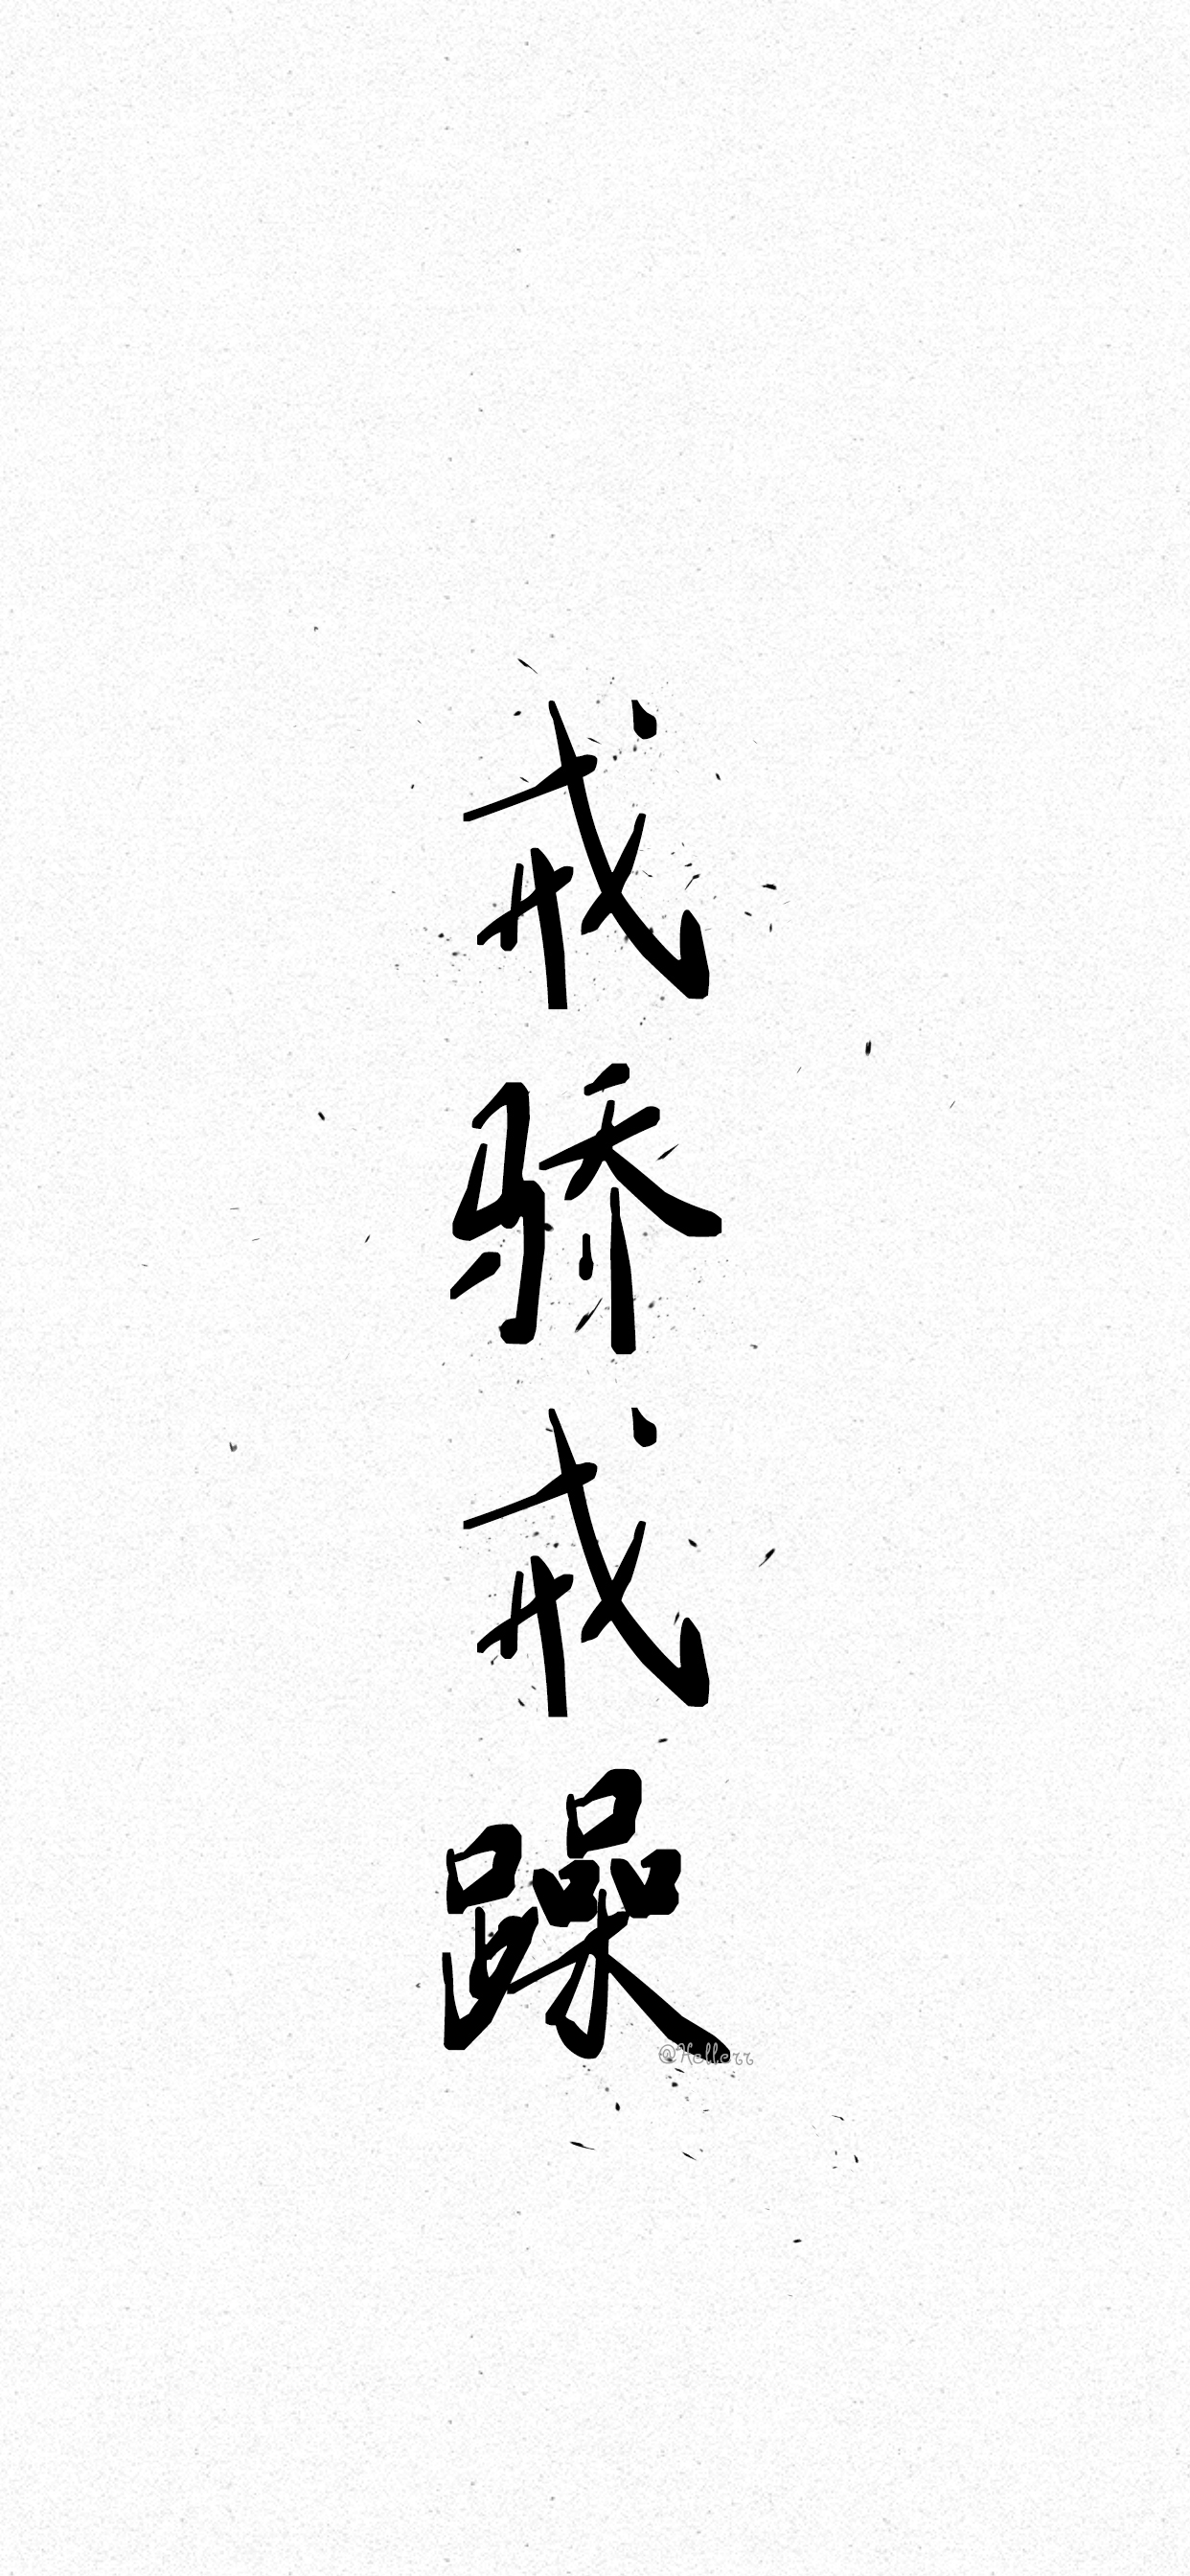 戒骄戒躁
@Hellorr